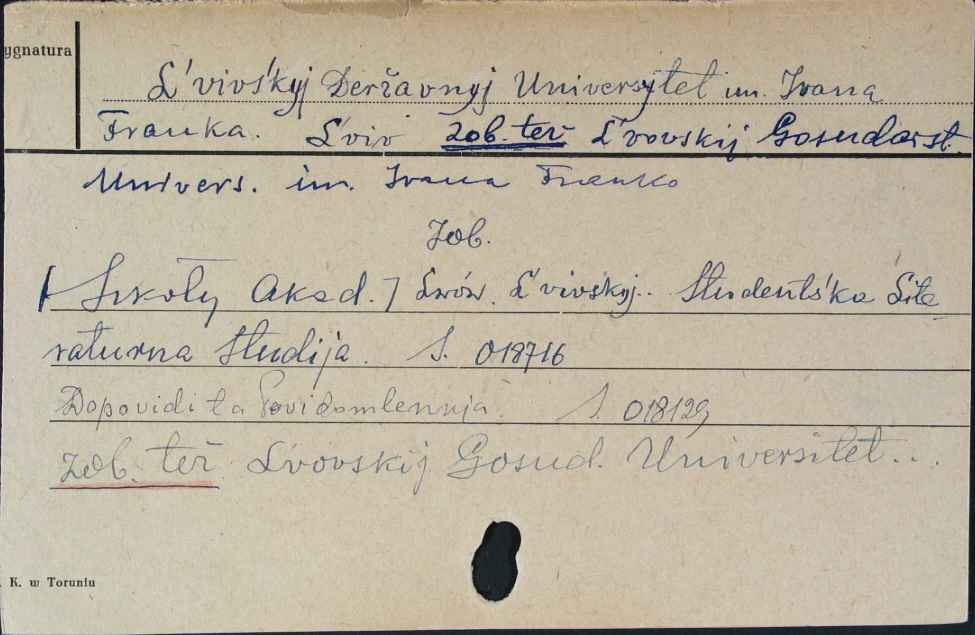 ygnatura
L'vivśkyj Deržavnyj Universytet im. Ivana
Franka. L'viv zob. też L'vovskij Gosudarst.
Univers. im. Ivana Franko
Zob.
[Szkoły Akad.] Lwów. L'vivśkyj.. Studentśka Lite
raturna Studija. S. 018716
Dopovidi ta Povidomlennja. S. 018129
zob. też L'vovskij Gosud. Universitet...
K. w Toruniu